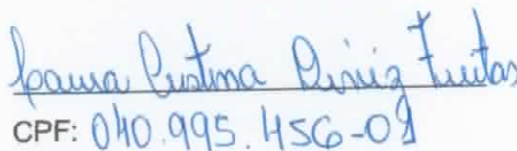 Laura Cristina Diniz Freitas
CPF: 040.995.456-09